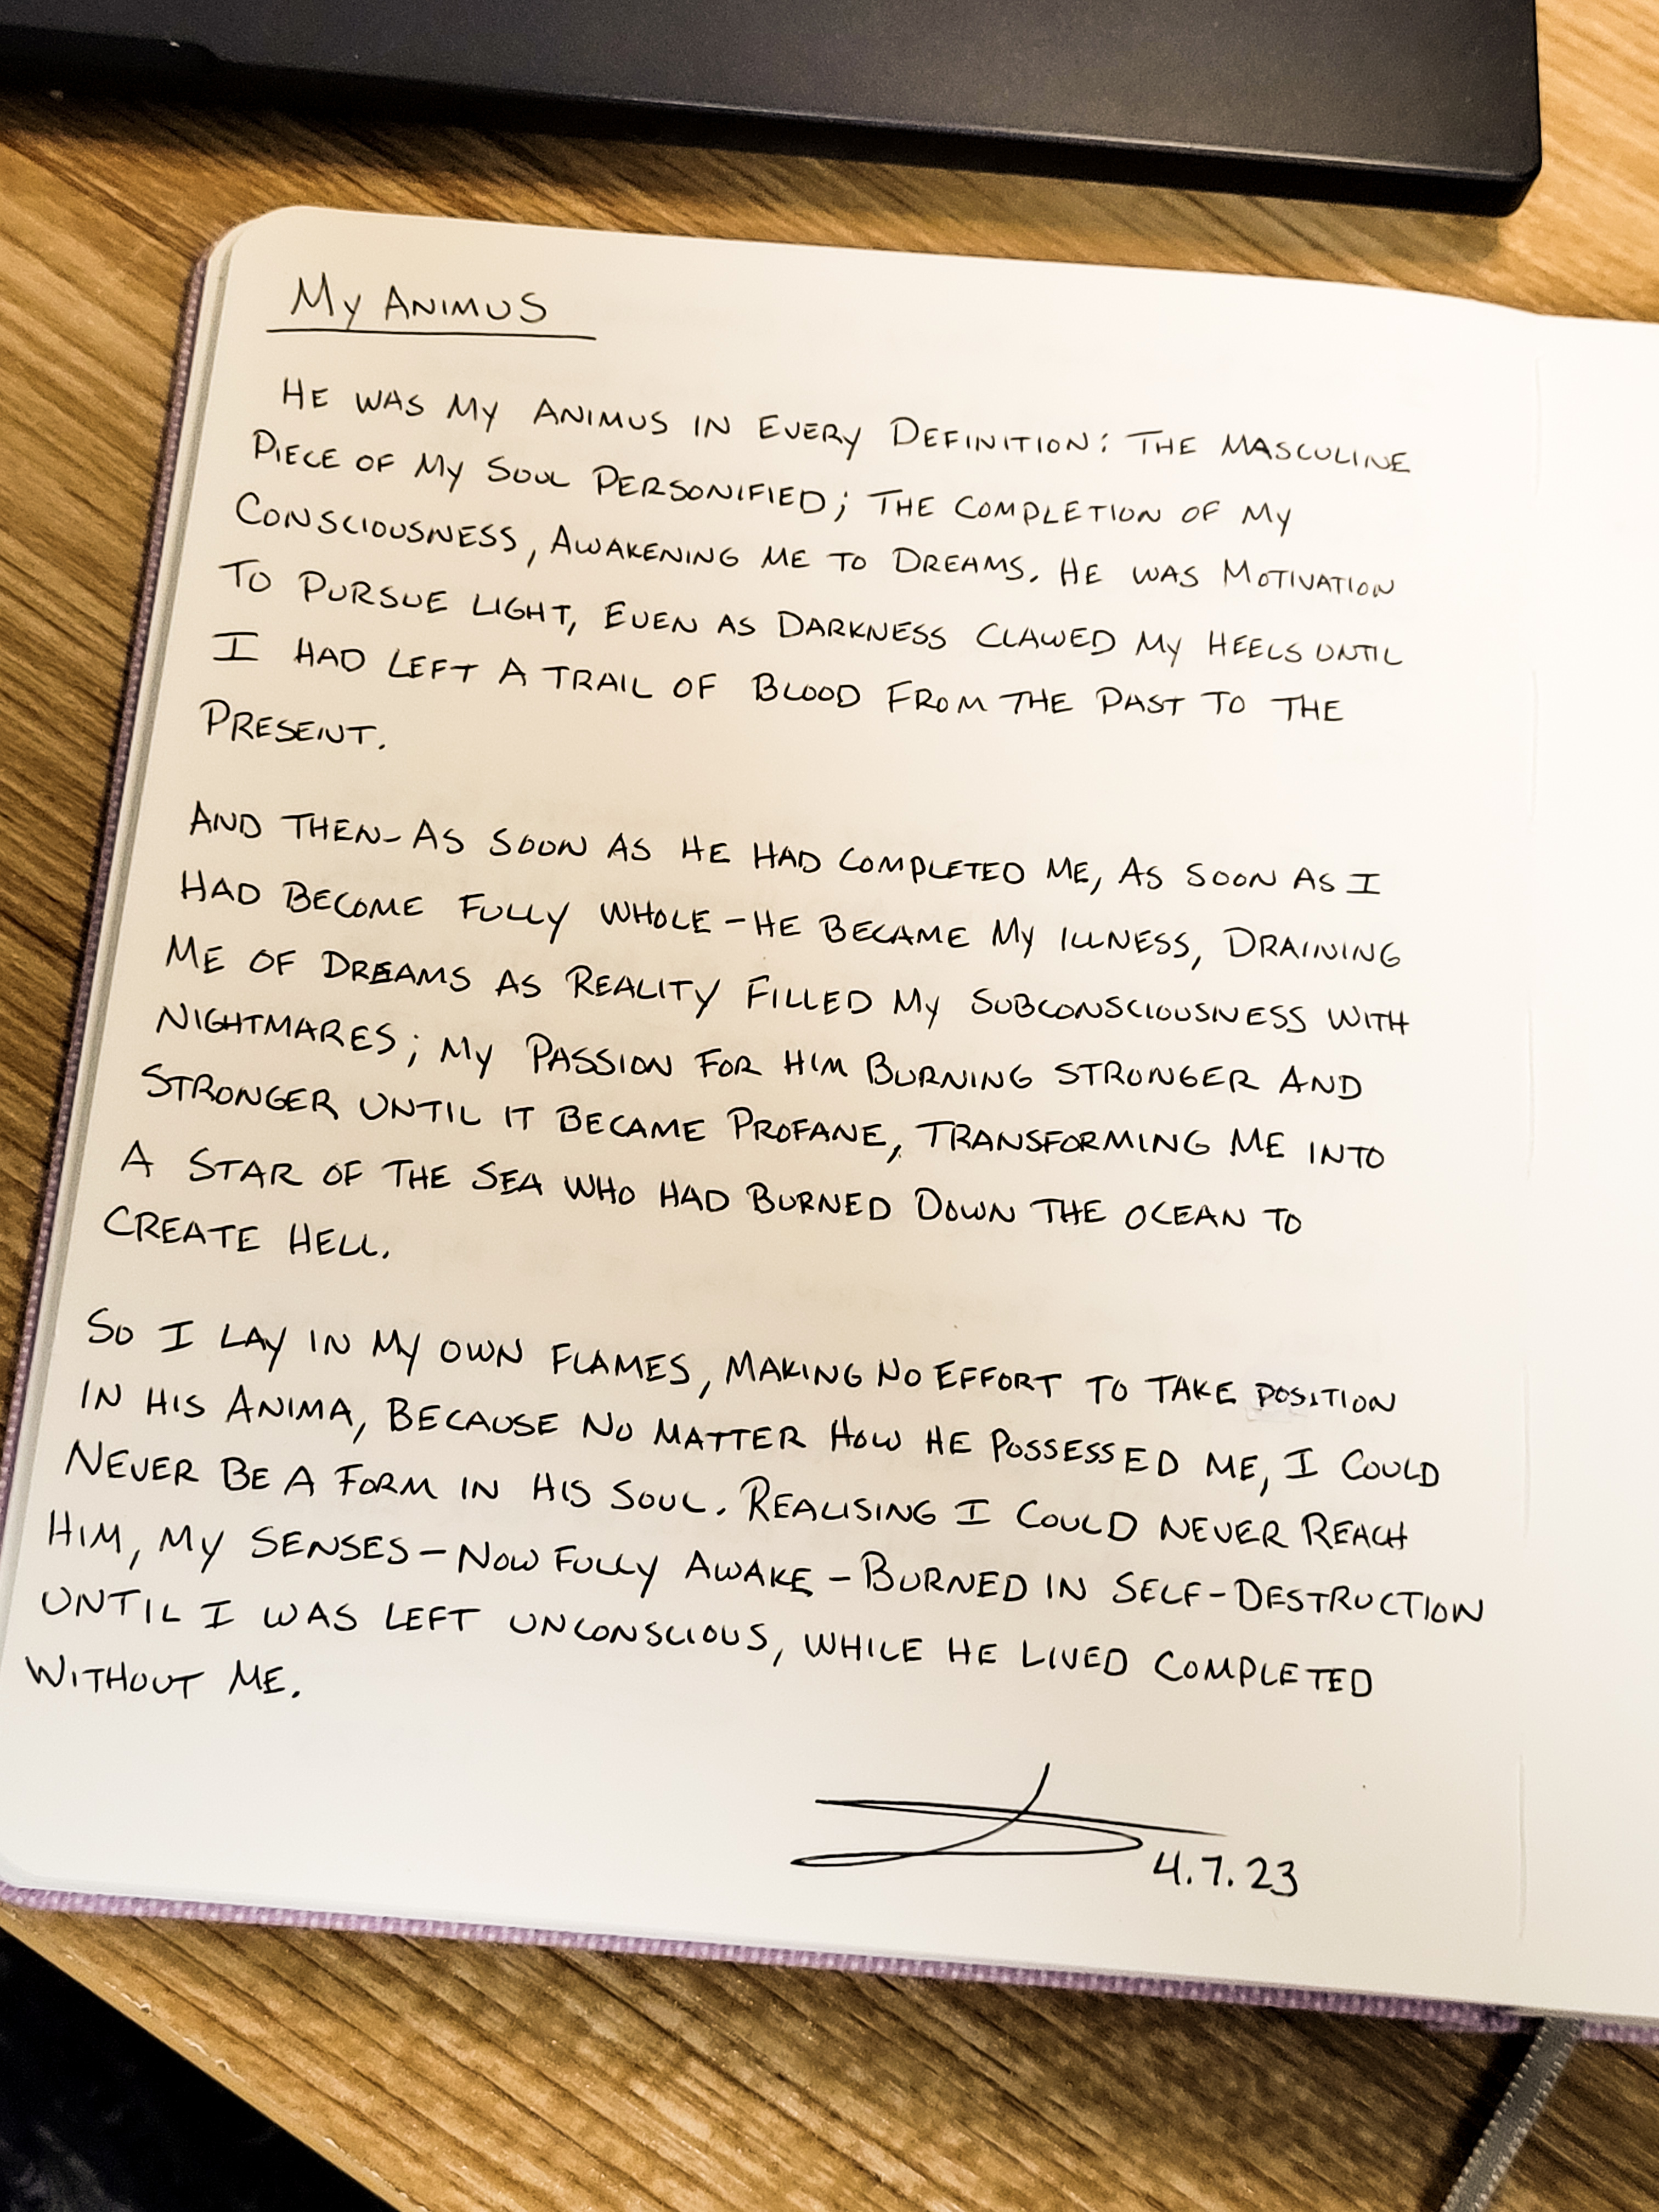 My ANIMUS
HE WAS MY ANIMUS IN EVERY DEFINITION: THE MASCULINE
PIECE OF MY SOUL PERSONIFIED; THE COMPLETION OF MY
CONSCIOUSNESS, AWAKENING ME TO DREAMS. HE WAS MOTIVATION
TO PURSUE LIGHT, EVEN AS DARKNESS CLAWED MY HEELS UNTIL
I HAD LEFT A TRAIL OF BLOOD FROM THE PAST TO THE
PRESENT.
AND THEN-AS SOON AS HE HAD COMPLETED ME, AS SOON AS I
HAD BECOME FULLY WHOLE-HE BECAME MY ILLNESS, DRAINING
ME OF DREAMS AS REALITY FILLED MY SUBCONSCIOUSNESS WITH
NIGHTMARES; MY PASSION FOR HIM BURNING STRONGER AND
STRONGER UNTIL IT BECAME PROFANE, TRANSFORMING ME INTO
A STAR OF THE SEA WHO HAD BURNED DOWN THE OCEAN TO
CREATE HELL.
SO I LAY IN MY OWN FLAMES, MAKING NO EFFORT TO TAKE POSITION
IN HIS ANIMA, BECAUSE NO MATTER HOW HE POSSESSED ME, I COULD
NEVER BE A FORM IN HIS SOUL. REALISING I COULD NEVER REACH
HIM, MY SENSES-NOW FULLY AWAKE-BURNED IN SELF-DESTRUCTION
UNTIL I WAS LEFT UNCONSCIOUS, WHILE HE LIVED COMPLETED
WITHOUT ME.
4.7.23